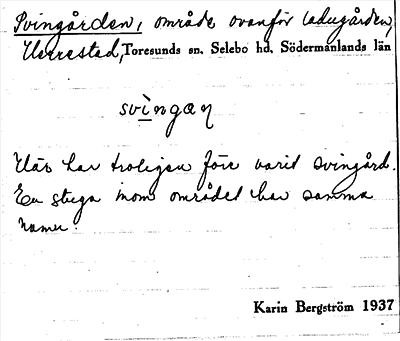 Svingården, område ovanför ladugården,
Toresunds sn, Selebo hd, Södermanlands län
Här har troligen förr varit svingård.
En stuga inom området har samma
namn.
Karin Bergström 1937